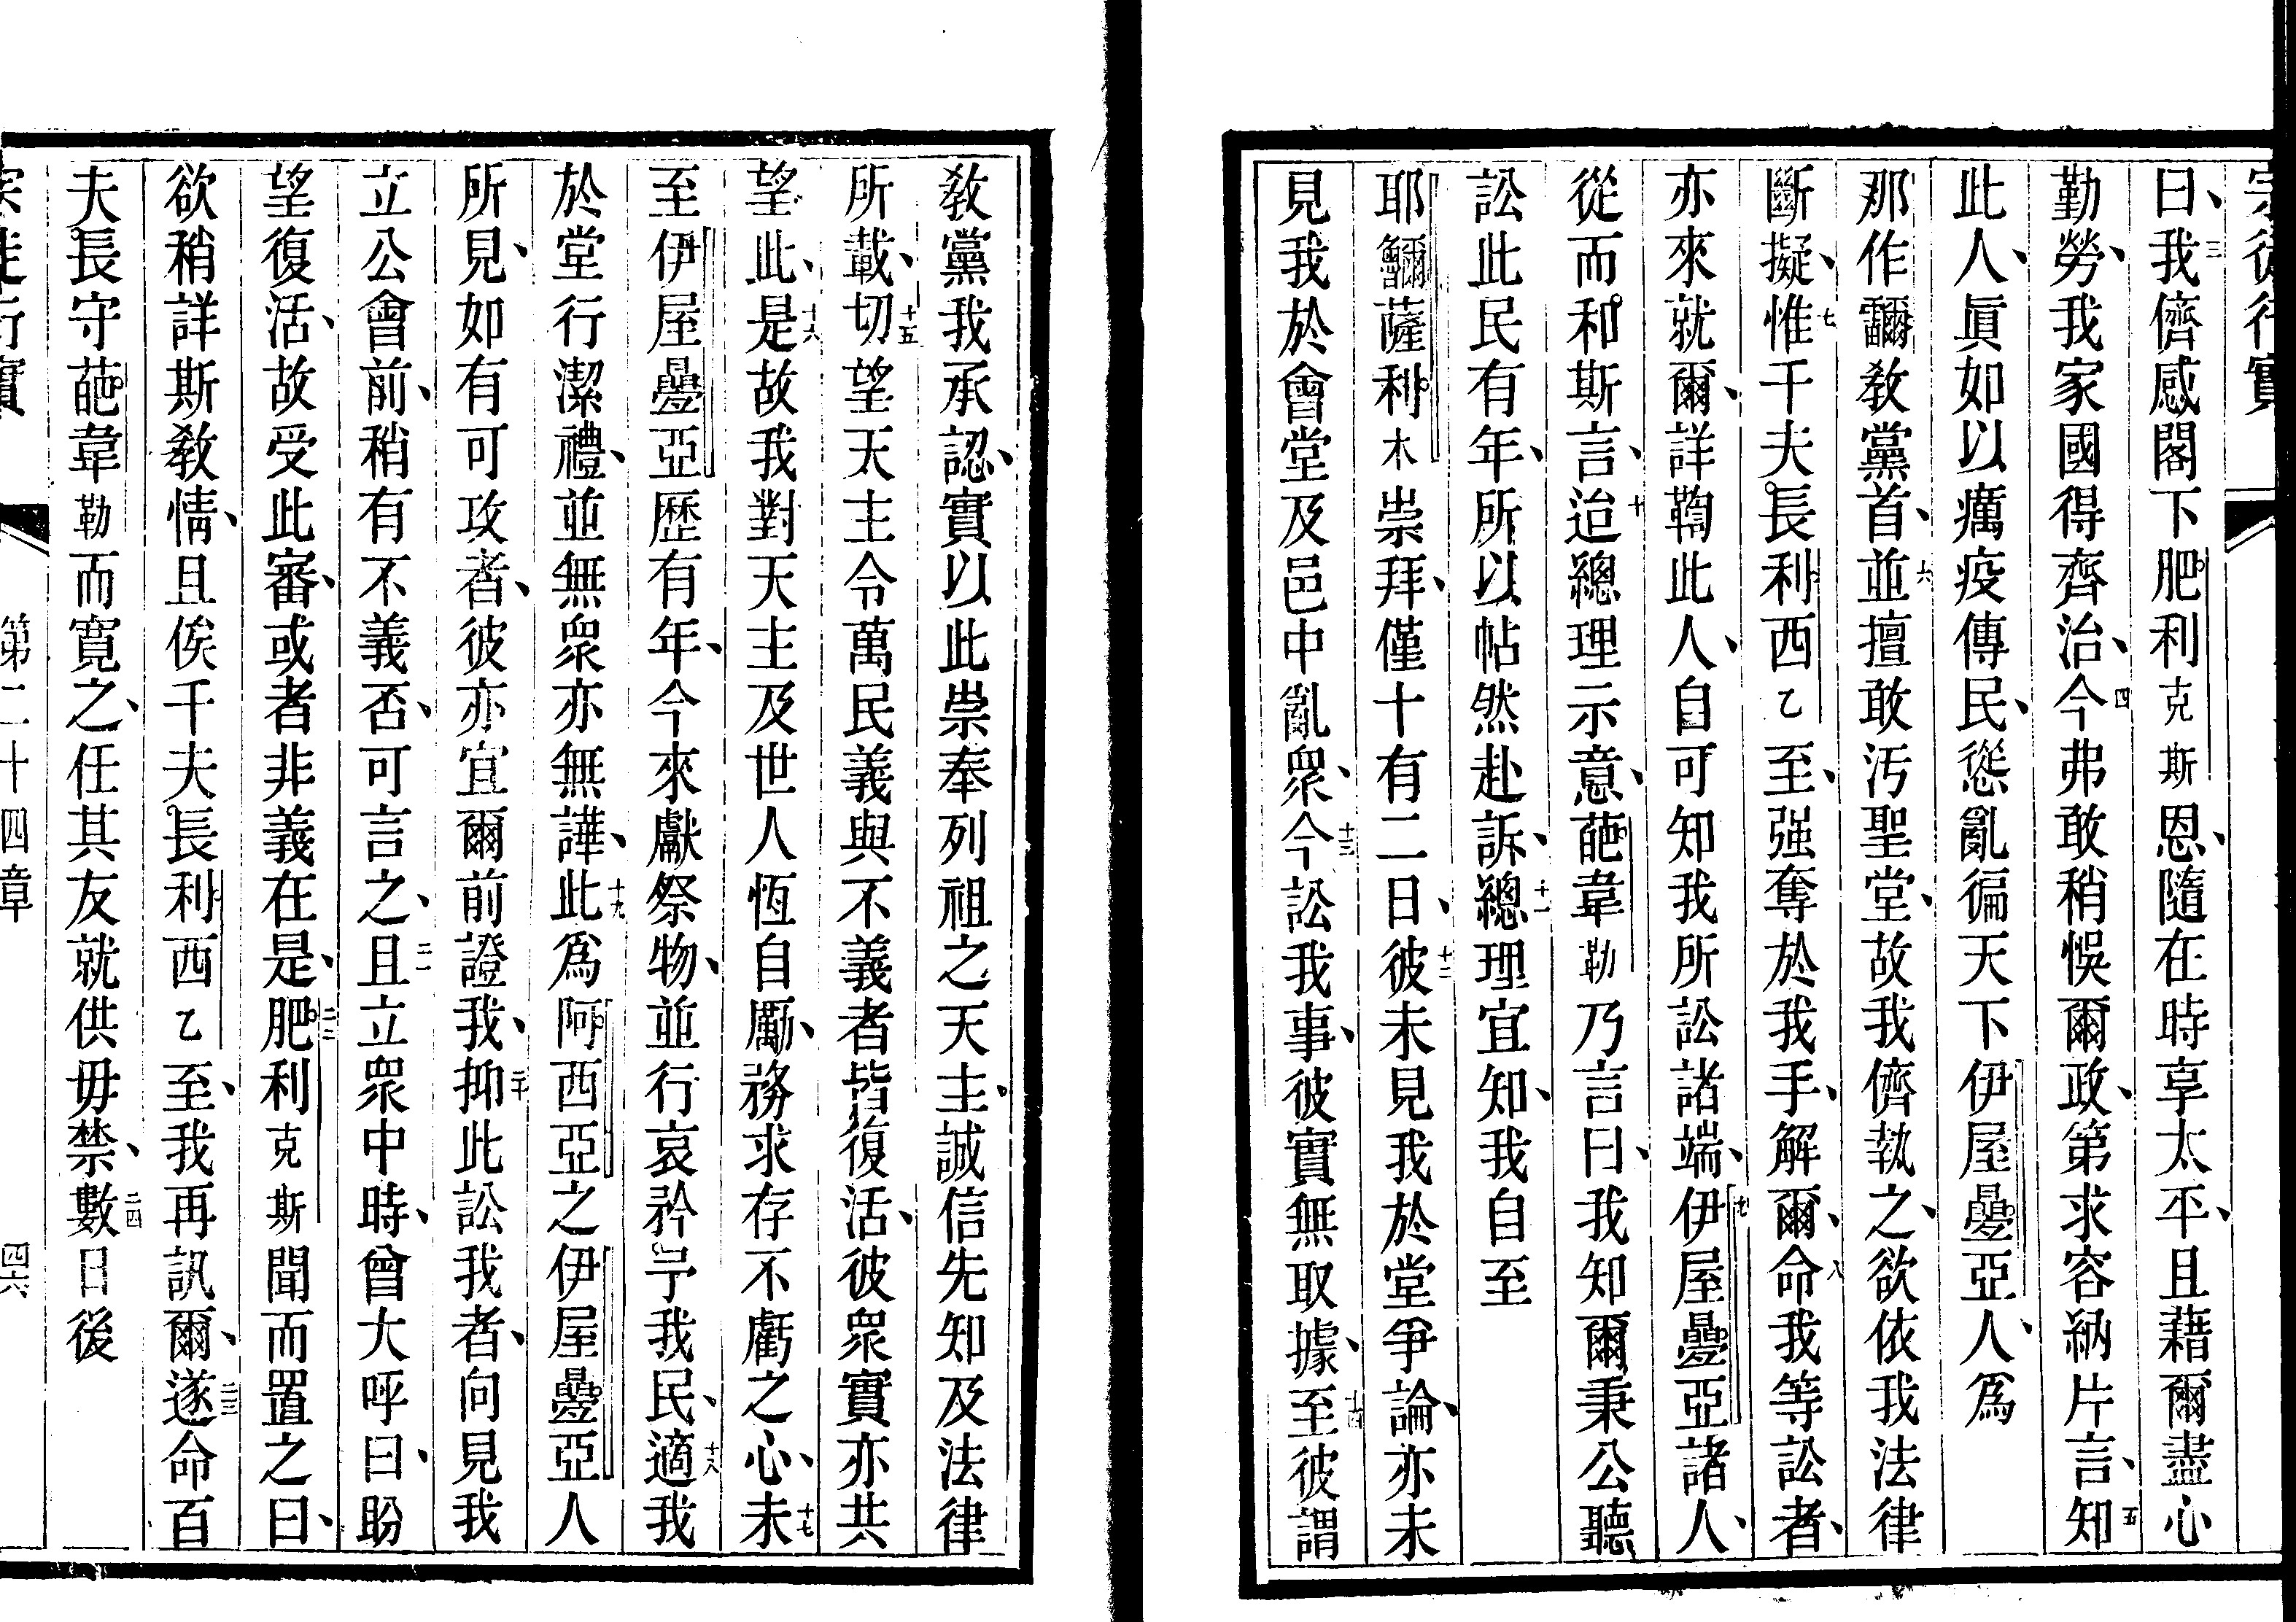 宗徒行實
曰、三我儕感閣下肥利克斯恩、隨在時享太平、且藉爾盡心
勤勞、我家國得齊治、四今弗敢稍悞爾政、第求容納片言、五知
此人、眞如以癘疫傳民、慫亂徧天下伊屋疊亞人、爲
那作爾教黨首、六並擅敢汚聖堂、故我儕執之、欲依我法律
斷擬、七惟千夫長利西乙至、强奪於我手、解爾、八命我等訟者、
亦來就爾、詳鞫此人、自可知我所訟諸端、九伊屋疊亞諸人、
從而和斯言、十迨總理示意、葩韋勒乃言曰、我知爾秉公聽
訟此民有年、所以帖然赴訴、十一總理宜知、我自至
耶薩利木崇拜、僅十有二日、十二彼未見我於堂爭論、亦未
見我於會堂及邑中亂眾、十三今訟我事、彼實無取據、十四至彼謂
教黨我承認、實以此崇奉列祖之天主、誠信先知及法律
所載、十五切望天主令萬民義與不義者皆復活、彼眾實亦共
望此、十六是故我對天主及世人恆自勵、務求存不虧之心、十七未
至伊屋疊亞歷有年、今來獻祭物、並行哀矜予我民、十八適我
於堂行潔禮、並無眾亦無譁、十九此爲阿西亞之伊屋疊亞人
所見、如有可攻者、彼亦宜爾前證我、二十抑此訟我者、向見我
立公會前、稍有不義否、可言之、二一且立眾中時、曾大呼曰、盼
望復活、故受此審、或者非義在是、二二肥利克斯聞而置之曰、
欲稍詳斯教情、且俟千夫長利西乙至、我再訊爾、二三遂命百
夫長守葩韋勒而寬之、任其友就供毋禁、二四數日後
宗徒行實　第二十四章　四六